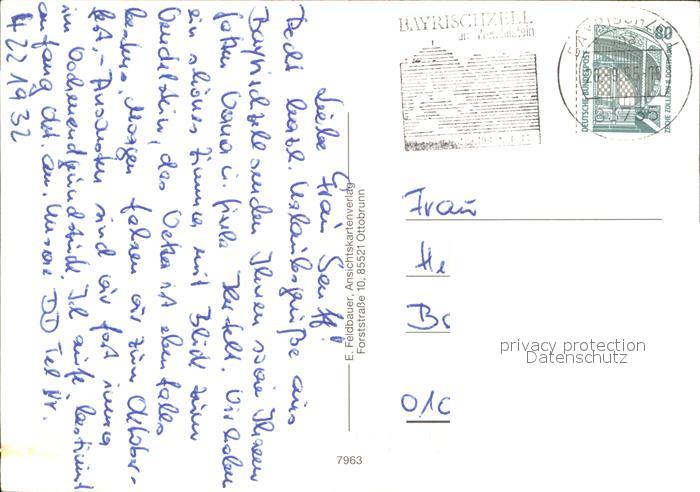 Liebe Frau Senff!
Recht herzl. Urlaubsgrüße aus
Bayrischzell senden Ihnen sowie Ihrem
Vater Oma u. Wir haben
ein schönes Zimmer mit Blick zum
Wendelstein, das Wetter ist ebenfalls
bestens. Morgen fahren wir zum Oktober-
fest, – Ansonsten sind wir fast immer
im Wochenendgrundstück. Ich rufe bestimmt
Anfang Okt. an. Unsere DD Tel Nr.
4 22 19 32
E. Feldbauer, Ansichtskartenverlag
Forststraße 10, 85521 Ottobrunn
7963
BAYRISCHZELL
am Wendelstein
80
DEUTSCHE BUNDESPOST
ZECHE ZOLLERN II DORTMUND
83735
Frau
He
Br
010
privacy protection
Datenschutz